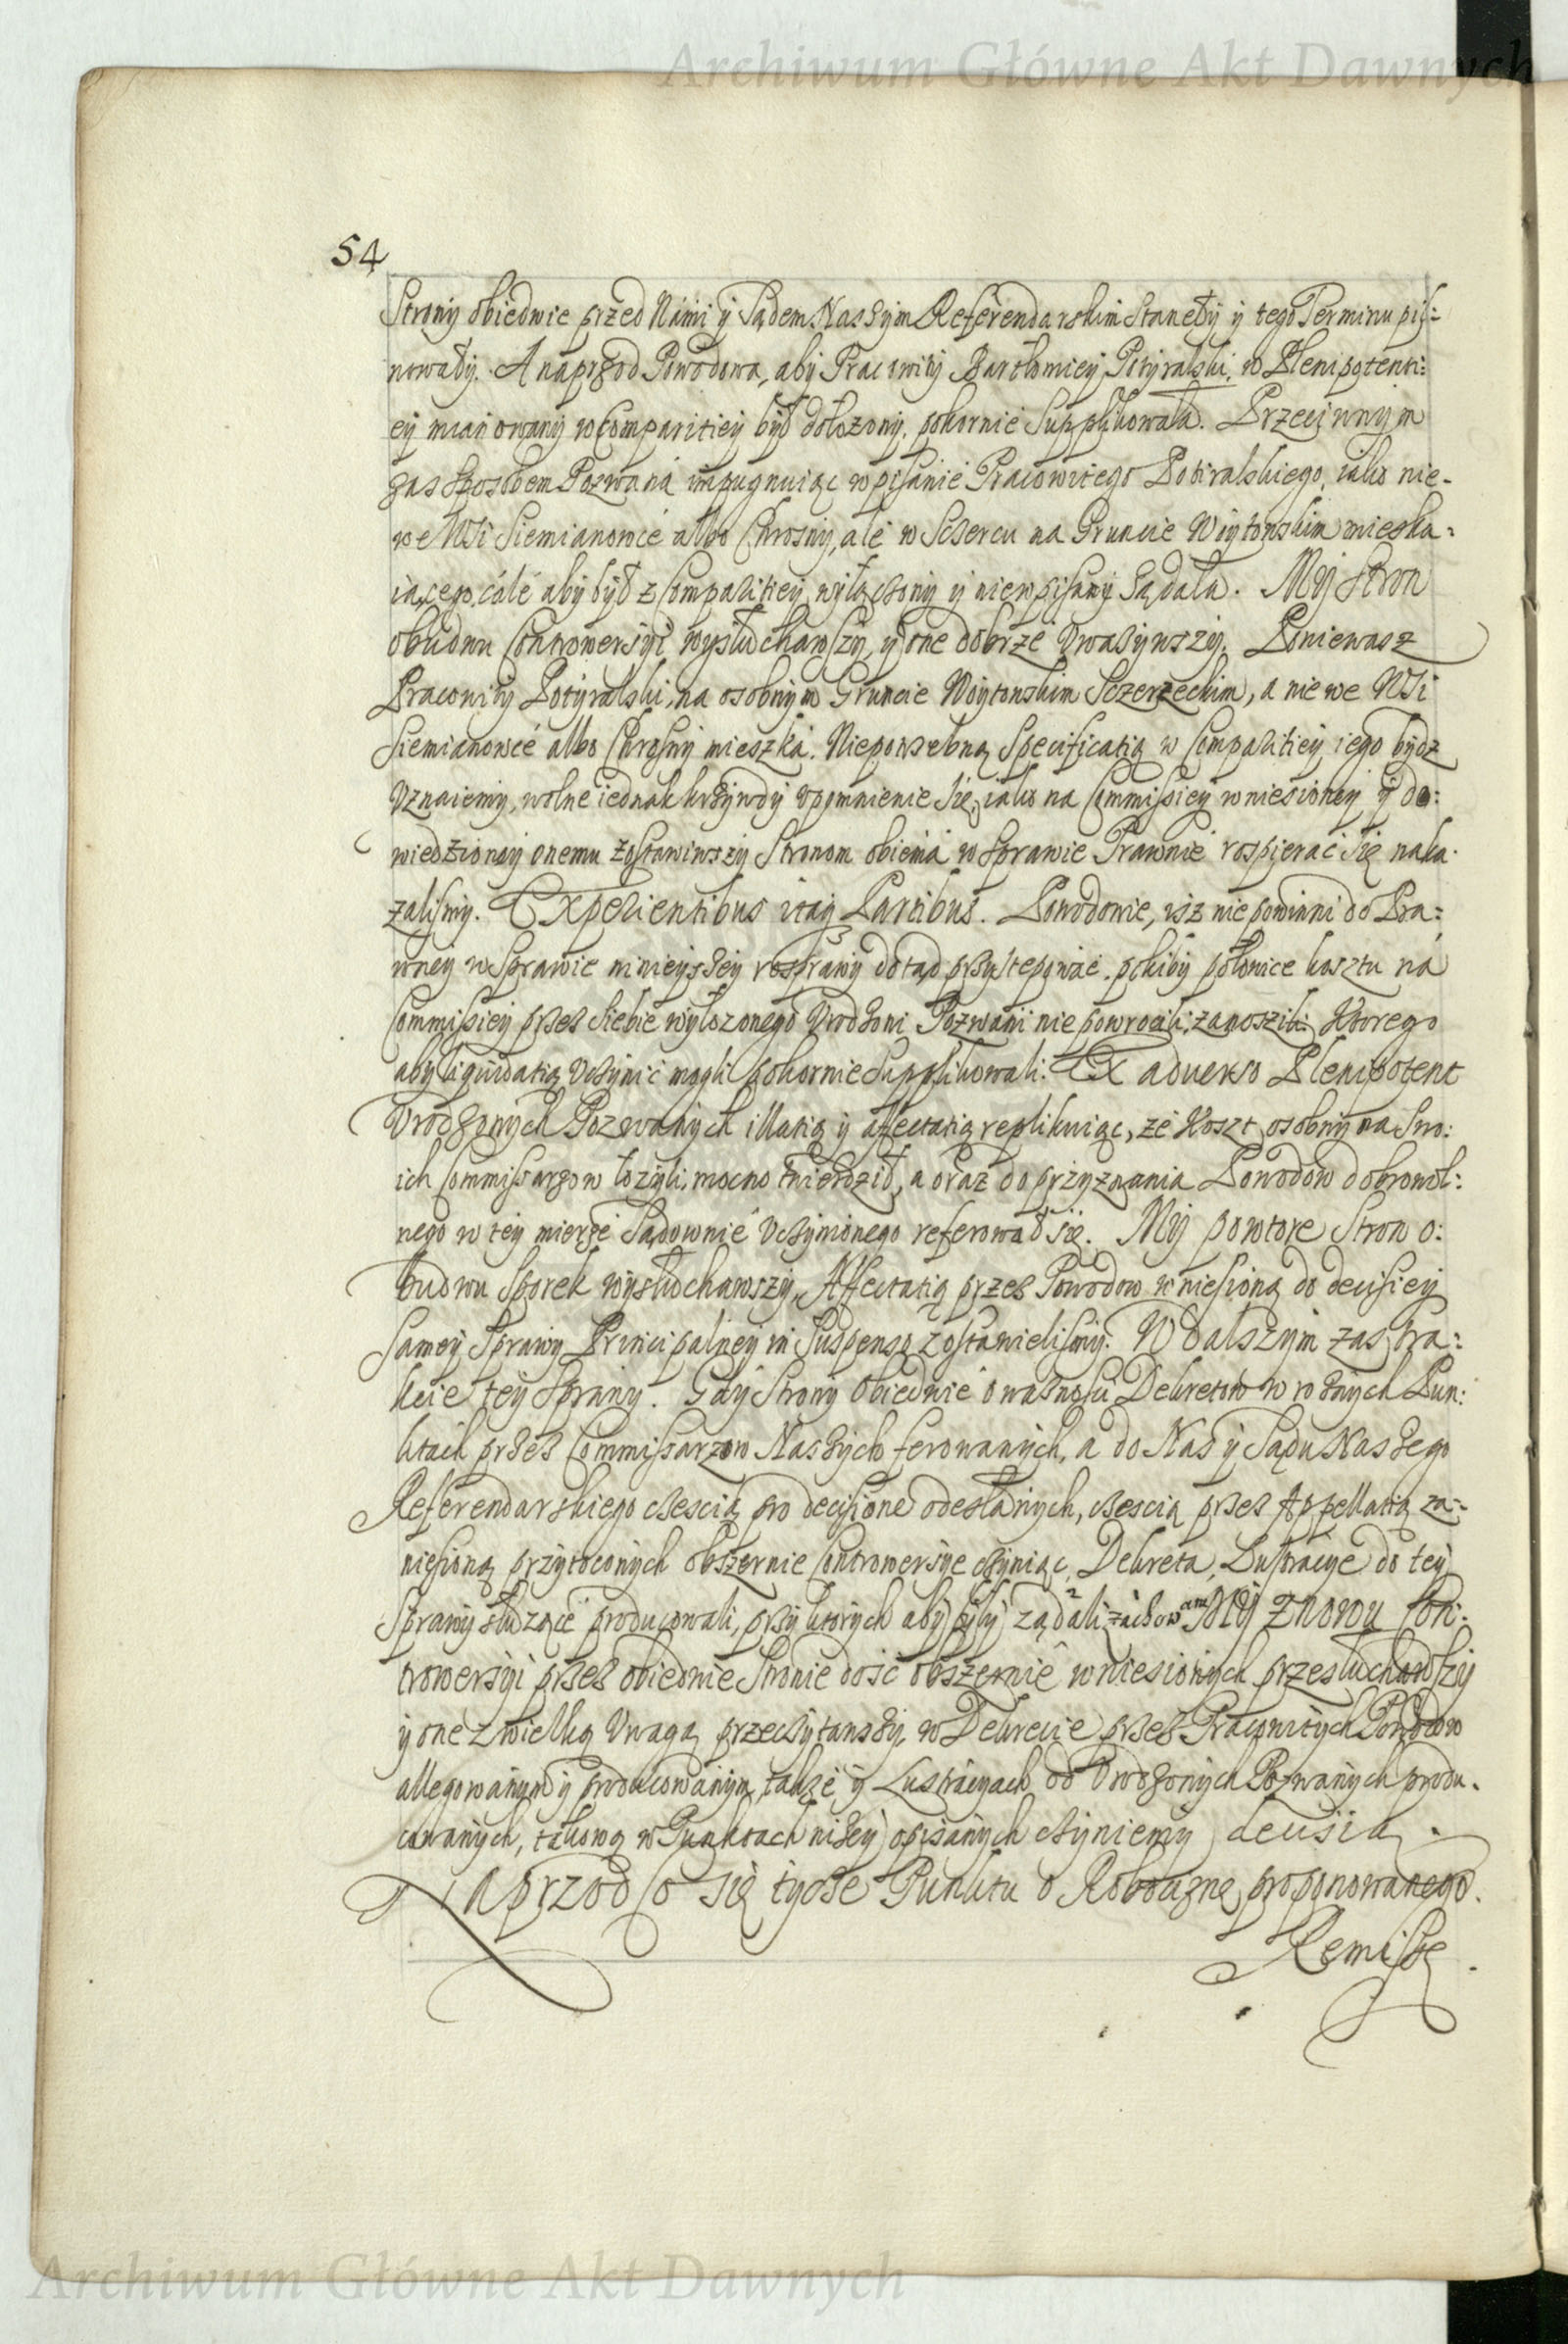 Archiwum Główne Akt Dawnych
54
Strony obiedwie przed Námi y Sądem Naszym Referendarskim Stanęły y tego Terminu pil:
nowały. A naprzod Powodowa, aby Pracowity Bartłomiey Potyralski, w Plenipotenti:
ey mianowany w Comparitiey był dołozony, pokornie Supplikowała. Przeciwnym
zas Sposobem Pozwaná impugnuiąc wpisanié Pracowitego Potiralskiego, iako nie-
we Wsi Siemianowcé albo Chrosny, alé w Sczercu na Gruncie Woytowskim mieszka:
iącego, cálé aby był z Comparitiey wyłączony y niewpisany Żądała. My Stron
obudwu Controwersyi wysłuchawszy, y one dobrzé Vważywszy. Poniewasz
Pracowity Potyralski, na osobnym Gruncie Woytowskim Sczerzeckim, a nie we Wsi
Siemianowcé albo Chrosny mieszká. Niepotrzebną Specificatią w Comparitiey iego bydz
Vznaiemy, wolne iednak krzywdy vpomnienie Się, iako na Commissiey wniesioney y do:
wiedzioney onemu zostawiwszy Stronom obiemá w Sprawie Prawnié rospierać Się naka
zalismy. Experientibus itaq Partibus. Powodowie, isz nie powinni do Pra:
wney w Sprawie ninieyszey rosprawy dotąd przystępowáć, pokiby połowice kosztu ná
Commissiey przez Siebie wyłozonego Vrodzoni Pozwani nie powrocili, zanosili: Ktorego
aby liquidatią Vczynić mogli pokornie Supplikowali. Ex aduerso Plenipotent
Vrodzonych Pozwanych illatią y affectatią replikuiąc, zé Koszt osobny na Swo:
ich Commissarzow łozyli, mocno twierdził, a oraz do przyznania Powodow dobrowol:
nego w tey mierzé Sądownié Vczynionego referował się. My powtore Stron o:
budwu Sporek wysłuchawszy, Affectatią przez Powodow wniesioną do decisiey
Samey Sprawy Principalney in Suspenso zostawielismy. W dalszym zas tra:
kcie tey Sprawy. Gdy Strony obiedwié o waznosci Dekretow w roznych Pun:
ktach przez Commissarzow Naszych ferowanych, a do Nas y Sądu Naszego
Referendarskiego czescią pro decisione odesłánych, czescią przez Appellatią za:
niesioną przytoconych obszernie Controwersye czyniąc, Dekreta, Lustracye do tey
Sprawy słuzącé producowali, przy ktorych aby byli ząдali zachowani My Znowu Con:
trowersyi przez obiedwie Stronie dość obszernié wniesionych przesłuchawszy
y one z wielką Vwagą przeczytawszy, w Dekrecie przez Pracowitych Powodow
allegowanym y producowanym, takzé y Lustracyach od Vrodzonych Pozwanych produ-
cowanych, takową w Punktach nizey opisanych czyniemy decisią.
Naprzod Co się tycze Punktu o Robociznę proponowanego.
Remissę
Archiwum Główne Akt Dawnych